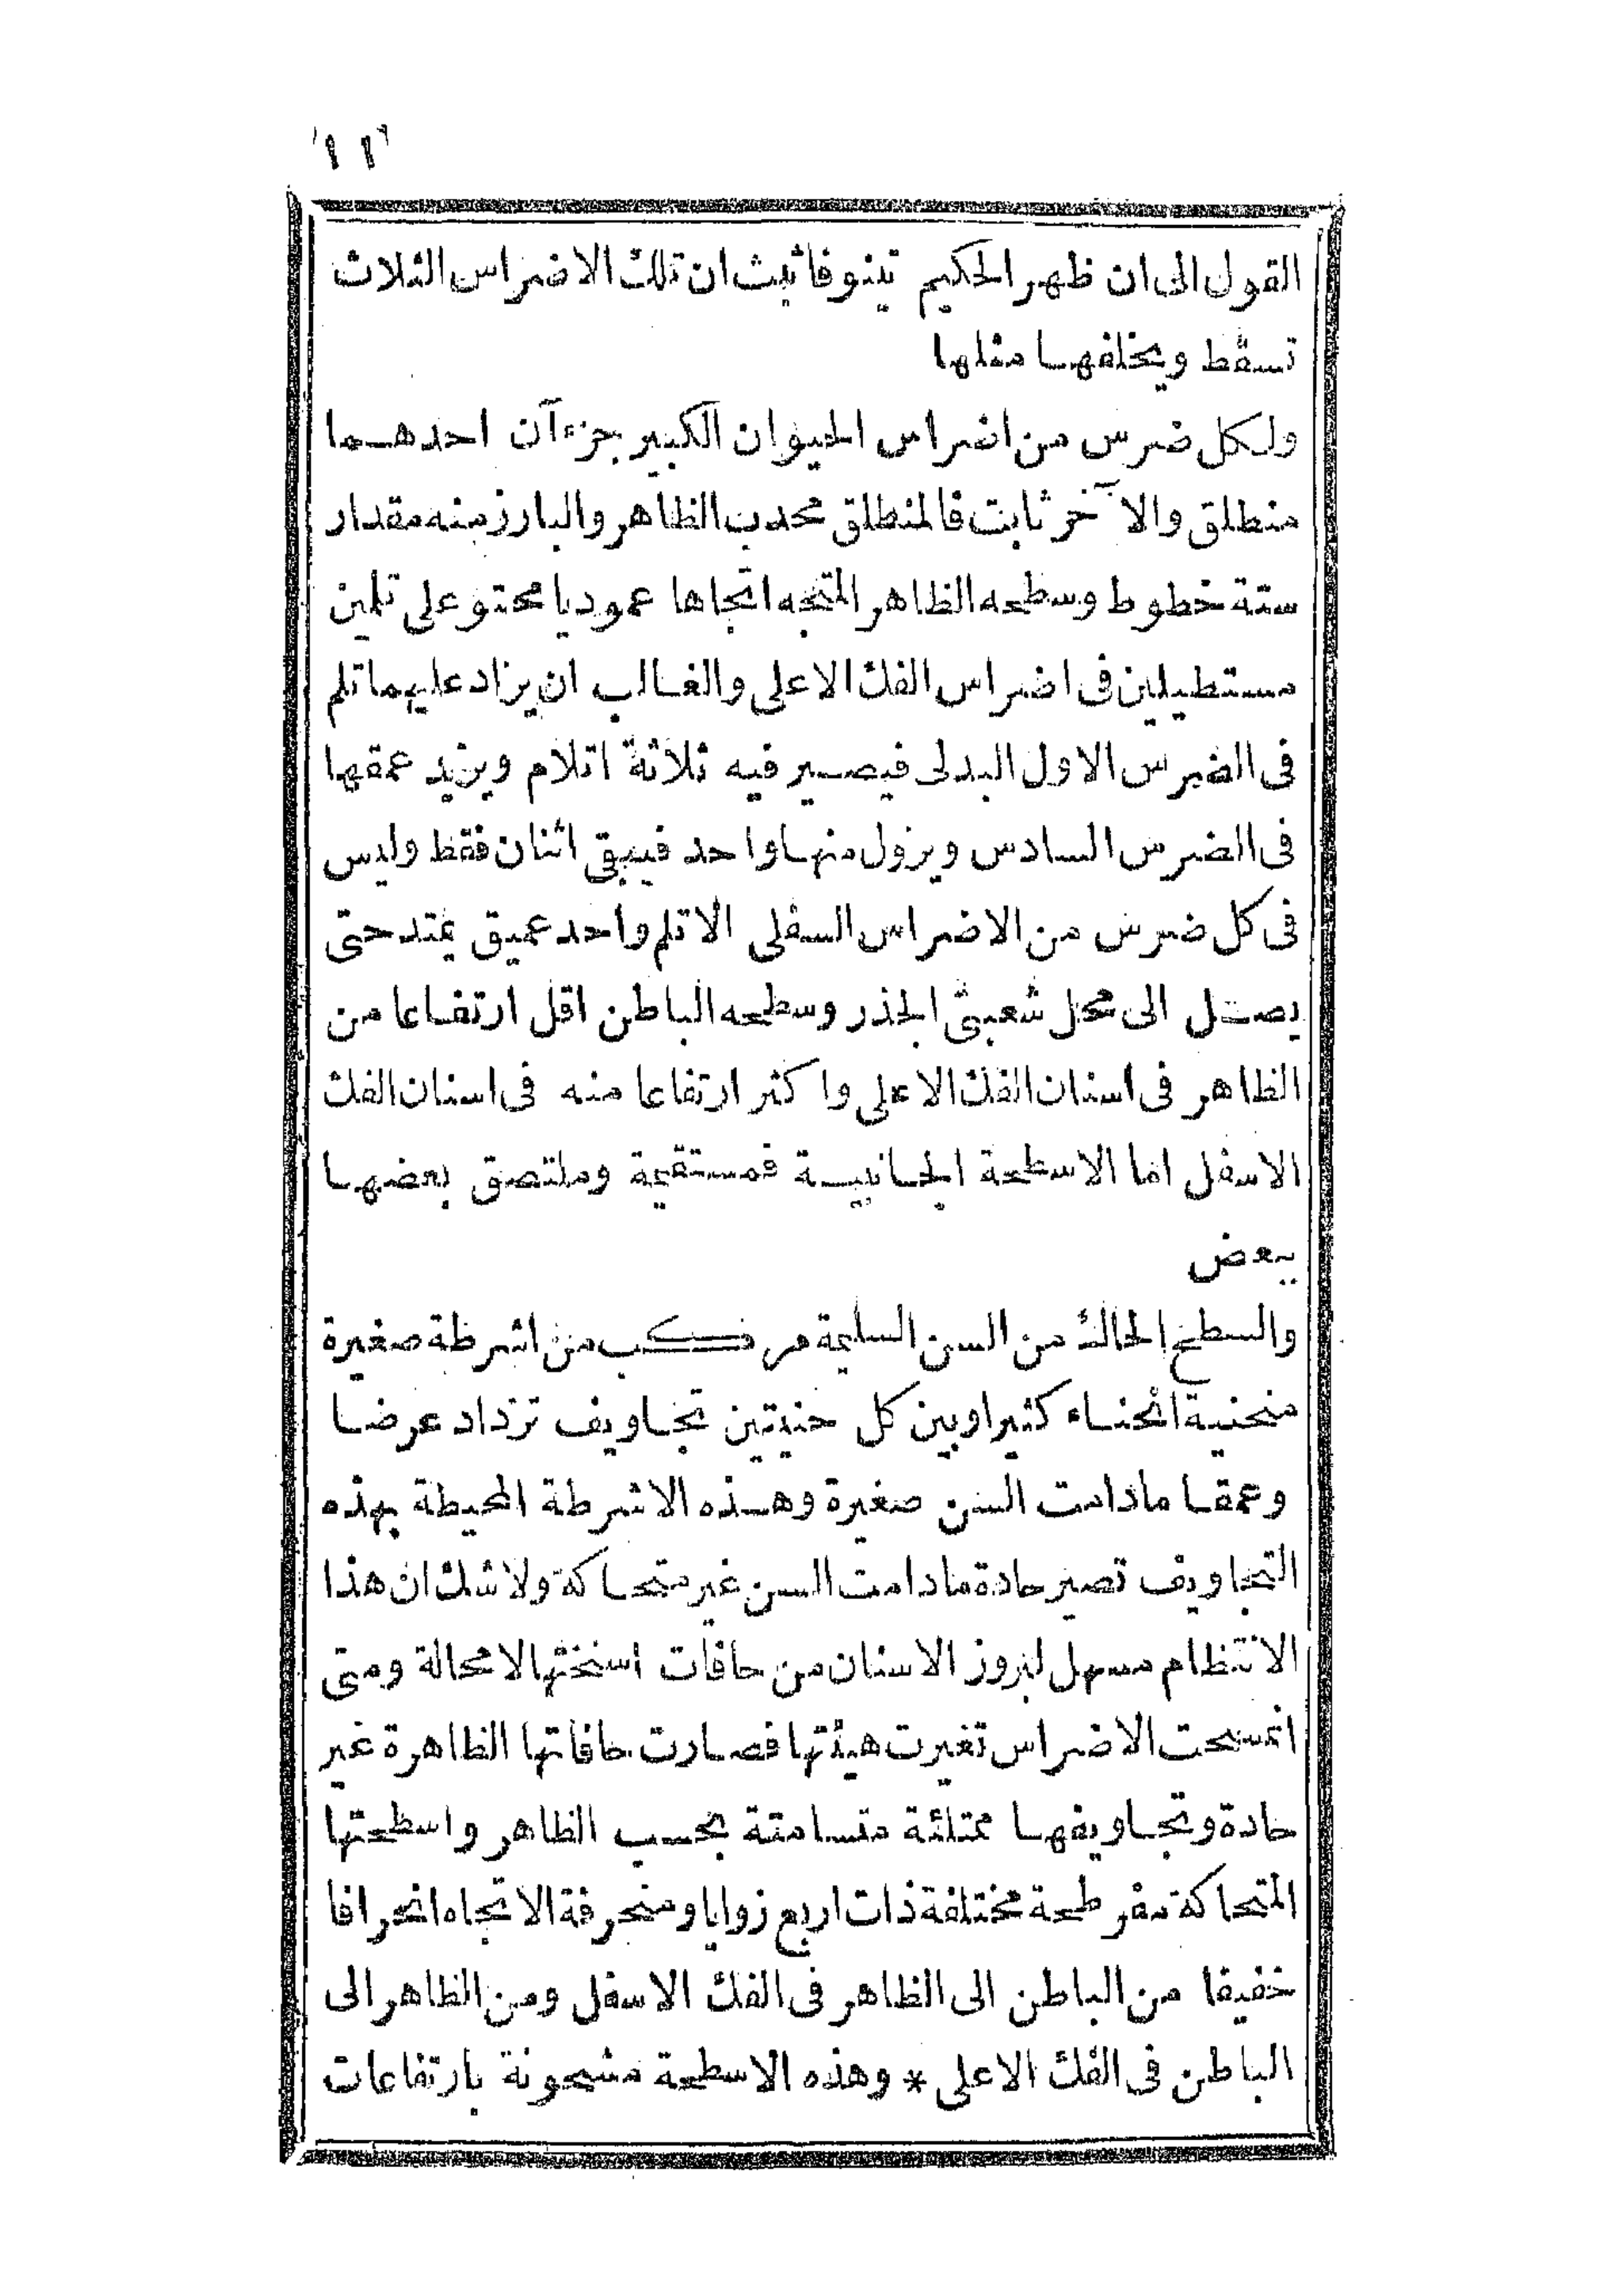 القول الى ان ظهر الحكيم تينو فاثبت ان تلك الاضراس الثلاث
تسقط ويخلفها مثلها
ولكل ضرس من اضراس الحيوان الكبير جزءآن احدهما
منطلق والآخر ثابت فالمنطلق محدب الظاهر والبارز منه مقدار
ستة خطوط وسطحه الظاهر المتجه اتجاها عموديا محتو على تلمين
مستطيلين فى اضراس الفك الاعلى والغالب ان يزاد عليهما تلم
فى الضرس الاول البدلى فيصير فيه ثلاثة اتلام ويزيد عمقها
فى الضرس السادس ويزول منها واحد فيبقى اثنان فقط وليس
فى كل ضرس من الاضراس السفلى الا تلم واحد عميق يمتد حتى
يصل الى محل شعبتى الجذر وسطحه الباطن اقل ارتفاعا من
الظاهر فى اسنان الفك الاعلى واكثر ارتفاعا منه فى اسنان الفك
الاسفل اما الاسطحة الجانبية فمستقيمة وملتصق بعضها
ببعض
والسطح الحاك من السن السليمة مركب من اشرطة صغيرة
منحنية انحناء كثيرا وبين كل حنيتين تجاويف تزداد عرضا
وعمقا مادامت السن صغيرة وهذه الاشرطة المحيطة بهذه
التجاويف تصير حادة مادامت السن غير متحاكة ولاشك ان هذا
الانتظام مسهل لبروز الاسنان من حافات اسنختها لامحالة ومتى
انمسحت الاضراس تغيرت هيئتها فصارت حافاتها الظاهرة غير
حادة وتجاويفها ممتلئة متسامتة بحسب الظاهر واسطحتها
المتحاكة مفرطحة مختلفة ذات اربع زوايا ومنحرفة الاتجاه انحرافا
خفيفا من الباطن الى الظاهر فى الفك الاسفل ومن الظاهر الى
الباطن فى الفك الاعلى * وهذه الاسطحة مشحونة بارتفاعات